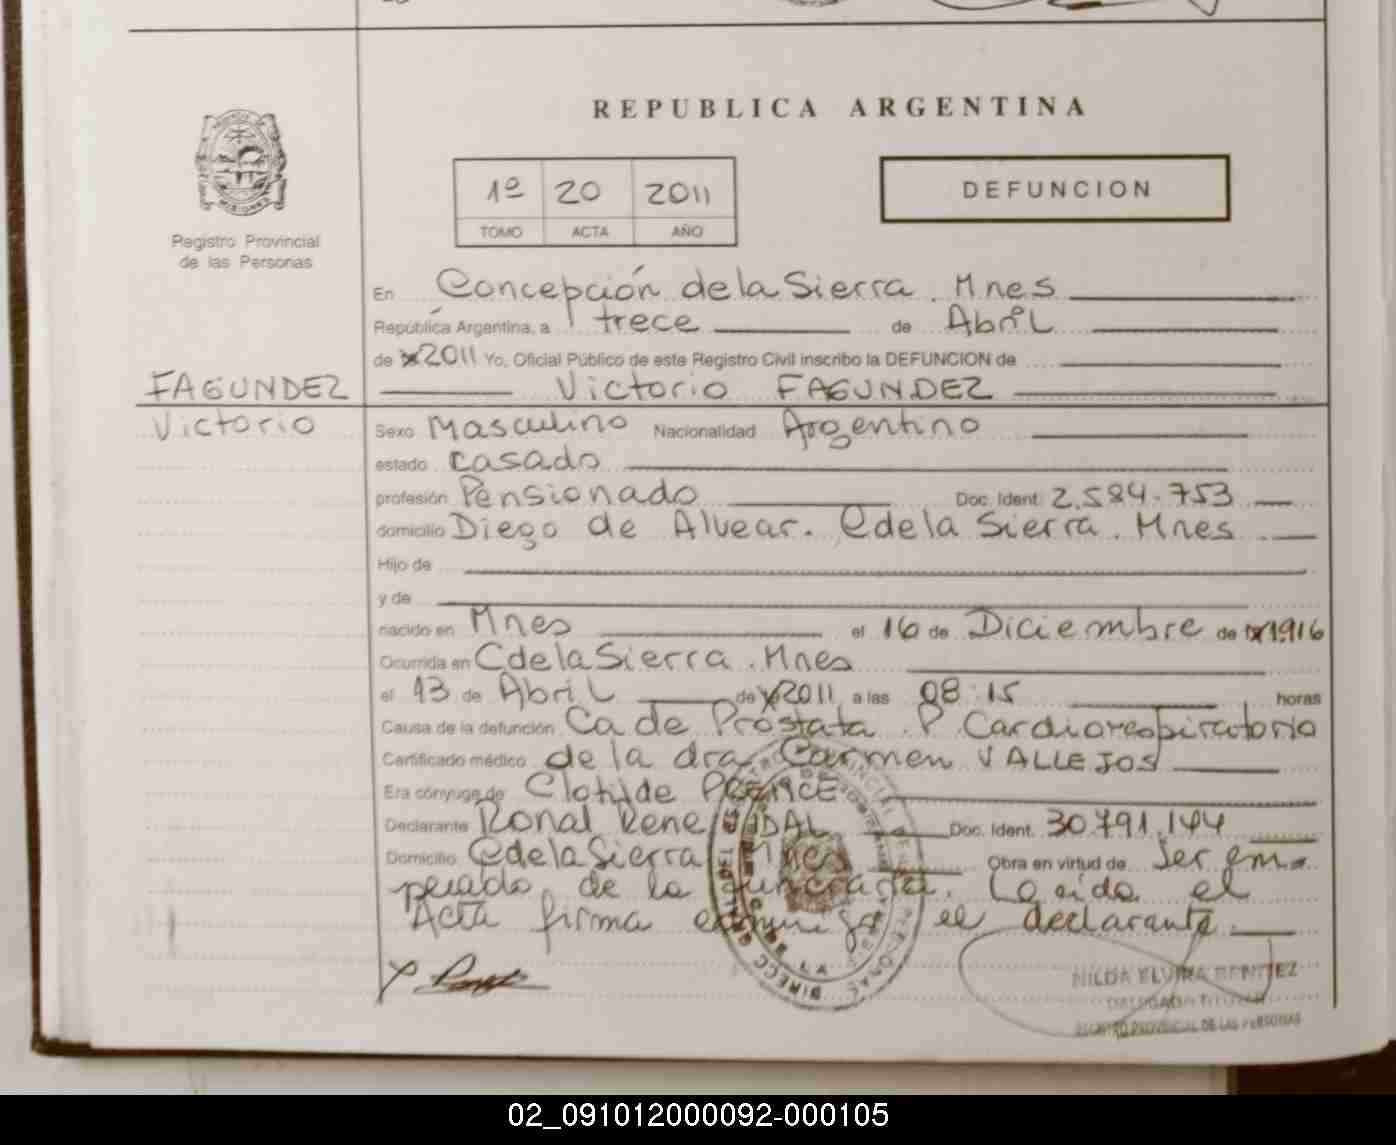 REPUBLICA ARGENTINA
1º 20 2011
TOMO ACTA AÑO
DEFUNCION
Registro Provincial
de las Personas
En Concepción de la Sierra. Mnes
República Argentina, a trece de Abril
de 2011 Yo, Oficial Público de este Registro Civil inscribo la DEFUNCION de
FAGUNDEZ
Victorio
Victorio FAGUNDEZ
Sexo Masculino Nacionalidad Argentino
estado casado
profesión Pensionado Doc. Ident. 2.584.753
domicilio Diego de Alvear. C de la Sierra. Mnes
Hijo de
y de
nacido en Mnes el 16 de Diciembre de 1916
Ocurrida en C de la Sierra. Mnes
el 13 de Abril de 2011 a las 08:15 horas
Causa de la defunción Ca de Próstata. P Cardiorespiratorio
Certificado médico de la dra Carmen VALLEJOS
Era cónyuge de Clotilde
Declarante Ronal Rene Doc. Ident. 30.791.144
Domicilio C de la Sierra Mnes Obra en virtud de Ser em-
pleado de la funeraria. Leída el
Acta firma conmigo el declarante.
NILDA ELVIRA BENITEZ
DELEGADA TITULAR
REGISTRO PROVINCIAL DE LAS PERSONAS
02_091012000092-000105